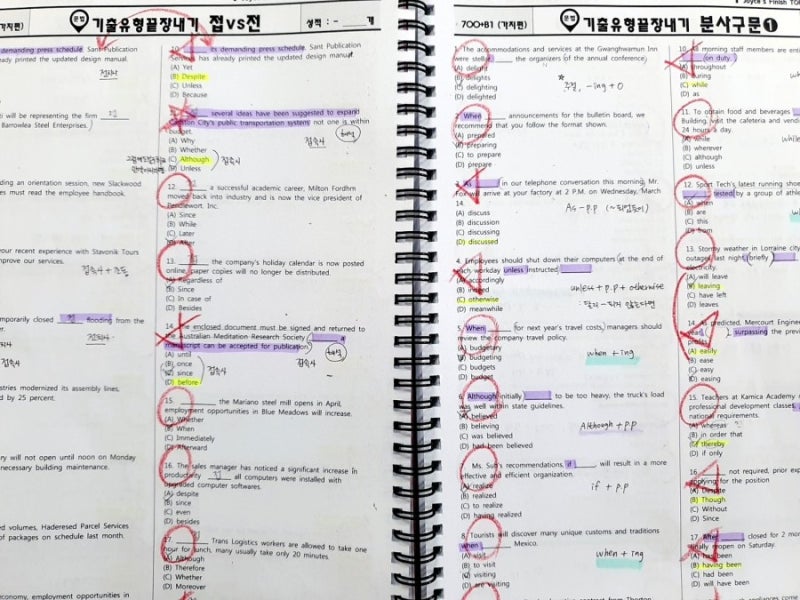 (가지편)
기출유형끝장내기 접vs전
성적 : - 개
demanding press schedule, Sant Publication
already printed the updated design manual.
접속사
will be representing the firm
Barrowlea Steel Enterprises.
ding an orientation session, new Slackwood
es must read the employee handbook.
your recent experience with Stavonik Tours
improve our services.
접속사 +
temporarily closed 전 flooding from the
전치사
접속사
접속사
tries modernized its assembly lines,
d by 25 percent.
ry will not open until noon on Monday
necessary building maintenance.
ed volumes, Haderesed Parcel Services
of packages on schedule last month.
economy, employment opportunities in
10. its demanding press schedule, Sant Publication
Services has already printed the updated design manual.
(A) Yet
(B) Despite
(C) Unless
(D) Because
several ideas have been suggested to expand
City's public transportation system, not one is within
budget.
(A) Why
(B) Whether
(C) Although
(D) Unless
접속사
접속사
12. a successful academic career, Milton Fordhm
moved back into industry and is now the vice president of
Pendlewort, Inc.
(A) Since
(B) While
(C) Later
(D) After
13. the company's holiday calendar is now posted
online, paper copies will no longer be distributed.
(A) Regardless of
(B) Since
(C) In case of
(D) Besides
14. The enclosed document must be signed and returned to
the Australian Meditation Research Society a
manuscript can be accepted for publication.
(A) until
(B) once
(C) since
(D) before
접속사
접속사
15. the Mariano steel mill opens in April,
employment opportunities in Blue Meadows will increase.
(A) Whether
(B) When
(C) Immediately
(D) Afterward
16. The sales manager has noticed a significant increase in
productivity 접 all computers were installed with
upgraded computer softwares.
(A) despite
(B) since
(C) even
(D) besides
17. Trans Logistics workers are allowed to take one
hour for lunch, many usually take only 20 minutes.
(A) Although
(B) Therefore
(C) Whether
(D) Moreover
700+B1 (가지편)
문법 기출유형끝장내기 분사구문❶
Joyce's Finish TOE
The accommodations and services at the Gwanghwamun Inn
were stellar, the organizers of the annual conference
(A) delight
(B) delights
(C) delighting
(D) delighted
주절, -ing + O
2. When announcements for the bulletin board, we
recommend that you follow the format shown.
(A) prepared
(B) preparing
(C) to prepare
(D) prepare
3. As in our telephone conversation this morning, Mr.
Fox will arrive at your factory at 2 P.M. on Wednesday, March
14.
(A) discuss
(B) discussion
(C) discussing
(D) discussed
As - p.p
4. Employees should shut down their computers at the end of
each workday unless instructed
(A) accordingly
(B) instead
(C) otherwise
(D) meanwhile
unless + p.p + otherwise
5. When for next year's travel costs, managers should
review the company travel policy.
(A) budgetary
(B) budgeting
(C) budgets
(D) budget
when + ing
6. Although initially to be too heavy, the truck's load
was well within state guidelines.
(A) believed
(B) believing
(C) was believed
(D) had been believed
Although + p.p
Ms. Sub's recommendations, if will result in a more
effective and efficient organization.
(A) realize
(B) realized
(C) to realize
(D) having realized
if + p.p
8. Tourists will discover many unique customs and traditions
when Mexico.
(A) visit
(B) to visit
(C) visiting
(D) are visiting
when + ing
10. All morning staff members are
(on duty.)
(A) throughout
(B) during
(C) while
(D) as
11. To obtain food and beverages
Building, visit the cafeteria and vend
24 hours a day.
(A) while
(B) wherever
(C) although
(D) unless
12. Sport Tech's latest running shoe
tested by a group of athle
(A) when
(B) are
(C) this
(D) from
13. Stormy weather in Lorraine city
outages last night, (briefly)
electricity.
(A) will leave
(B) leaving
(C) have left
(D) leaves
14. As predicted, Mercourt Engine
surpassing the previ
profits.
(A) easily
(B) ease
(C) easy
(D) easing
15. Teachers at Kamica Academy
professional development classes
national requirements.
(A) whereas
(B) in order that
(C) thereby
(D) if only
16. not required, prior exp
applying for the position
(A) Despite
(B) Though
(C) Without
(D) Since
17. After closed for 2 mon
finally reopen on Saturday.
(A) has been
(B) having been
(C) had been
(D) will have been